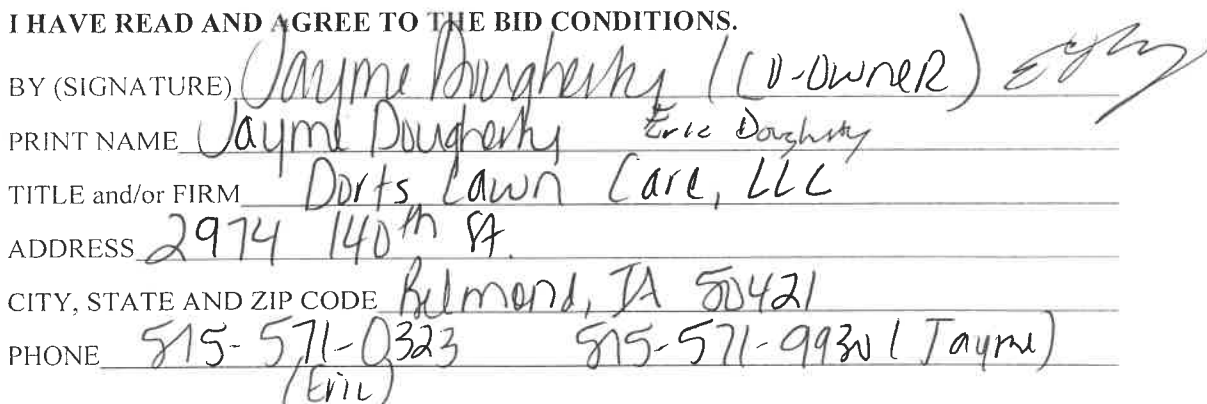 I HAVE READ AND AGREE TO THE BID CONDITIONS.
BY (SIGNATURE) Jayme Dougherty (CO-OWNER)
PRINT NAME Jayme Dougherty Eric Dougherty
TITLE and/or FIRM Dorts Lawn Care, LLC
ADDRESS 2974 140th St.
CITY, STATE AND ZIP CODE Belmond, IA 50421
PHONE 515-571-0323 515-571-9930 (Jayme)
(Eric)